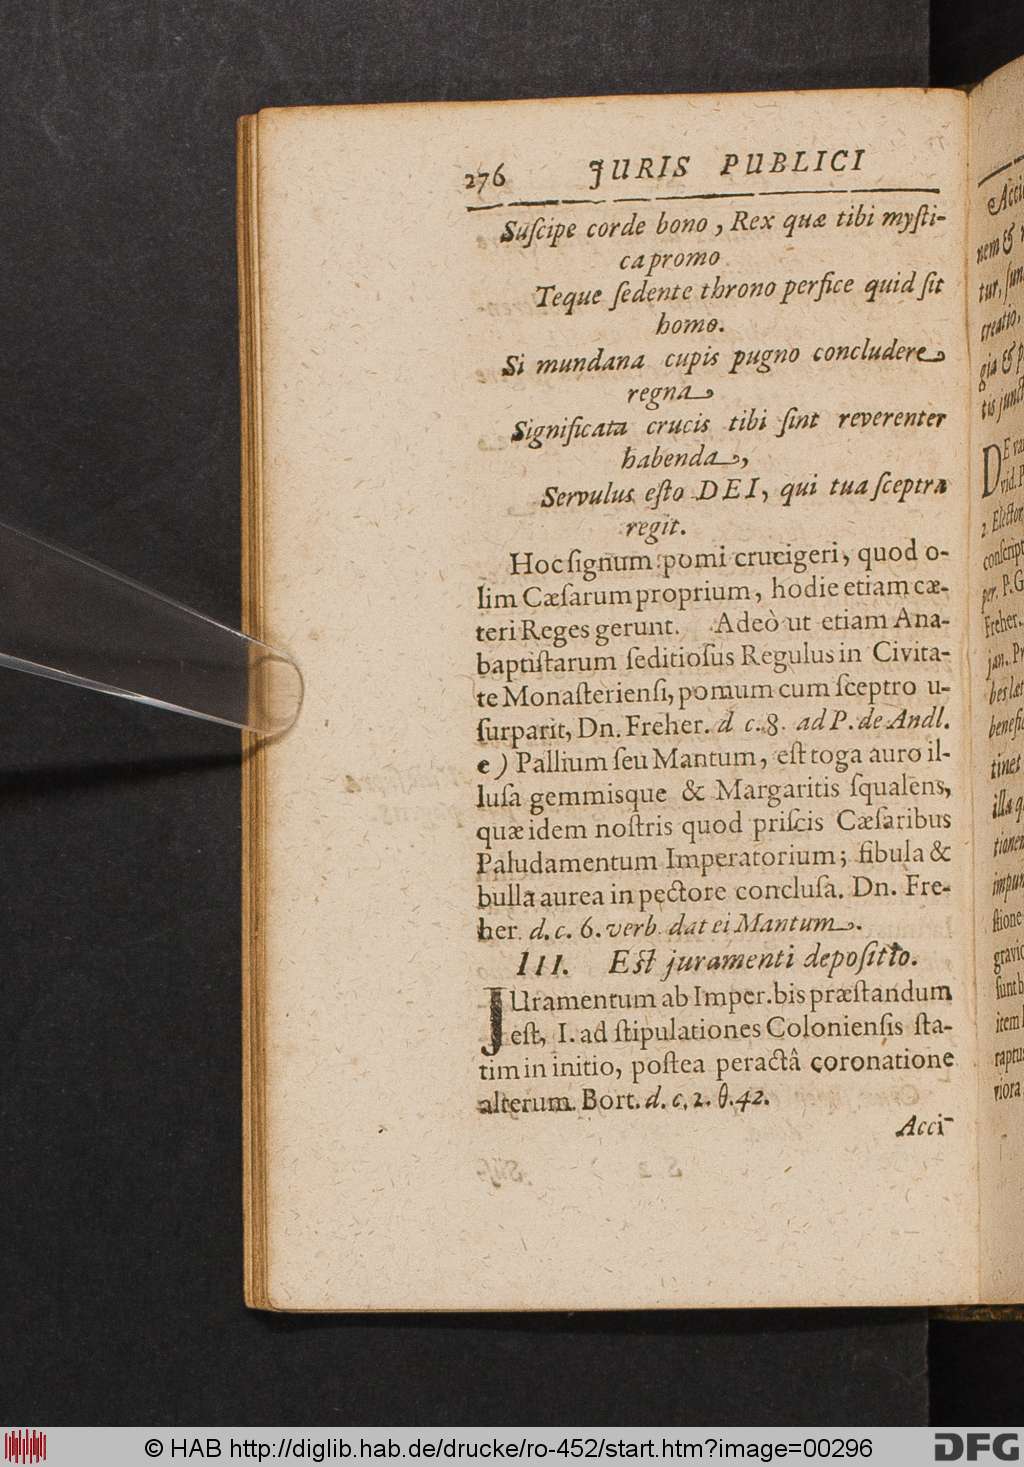 276 JURIS PUBLICI
Suſcipe corde bono, Rex quæ tibi myſti-
ca promo
Teque ſedente throno perfice quid ſit
homo.
Si mundana cupis pugno concludere
regna
Significata crucis tibi ſint reverenter
habenda,
Servulus eſto DEI, qui tua ſceptra
regit.
Hoc ſignum pomi crucigeri, quod o-
lim Cæſarum proprium, hodie etiam cæ-
teri Reges gerunt. Adeò ut etiam Ana-
baptiſtarum ſeditioſus Regulus in Civita-
te Monaſterienſi, pomum cum ſceptro u-
ſurparit, Dn. Freher. d c. 8. ad P. de Andl.
e) Pallium ſeu Mantum, eſt toga auro il-
luſa gemmisque & Margaritis ſqualens,
quæ idem noſtris quod priſcis Cæſaribus
Paludamentum Imperatorium; fibula &
bulla aurea in pectore concluſa. Dn. Fre-
her. d. c. 6. verb. dat ei Mantum.
III. Eſt juramenti depoſitio.
JUramentum ab Imper. bis præſtandum
eſt, I. ad ſtipulationes Colonienſis ſta-
tim in initio, poſtea peractâ coronatione
alterum. Bort. d. c. 2. θ. 42.
Acci-
Acci
nem &
tur, ſun
creatio,
gia & p
tis junct
DE va
vid. P
2. Elector
conſcript
per. P. G
Freher.
jan. Pr
bes læt
benefi
tinet
illa q
tionem
impun
ſtione
gravio
ſunt h
item
raptu
viora
© HAB http://diglib.hab.de/drucke/ro-452/start.htm?image=00296
DFG